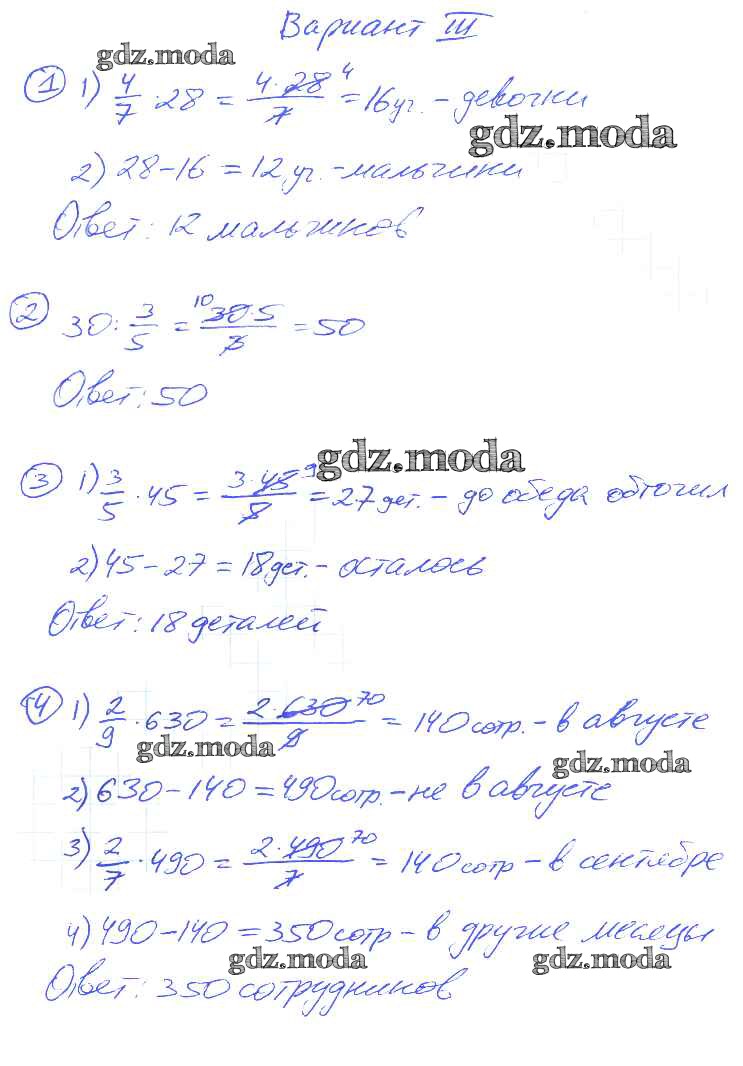 Вариант III
gdz.moda
① 1) 4/7 · 28 = 4·28⁴/7 = 16 уч. - девочки
gdz.moda
2) 28 - 16 = 12 уч. - мальчики
Ответ: 12 мальчиков
② 30 : 3/5 = ¹⁰30·5/3 = 50
Ответ: 50
gdz.moda
③ 1) 3/5 · 45 = 3·45⁹/5 = 27 дет. - до обеда обточил
2) 45 - 27 = 18 дет. - осталось
Ответ: 18 деталей
④ 1) 2/9 · 630 = 2·630⁷⁰/9 = 140 сотр. - в августе
gdz.moda
gdz.moda
2) 630 - 140 = 490 сотр. - не в августе
3) 2/7 · 490 = 2·490⁷⁰/7 = 140 сотр - в сентябре
4) 490 - 140 = 350 сотр - в другие месяцы
gdz.moda gdz.moda
Ответ: 350 сотрудников